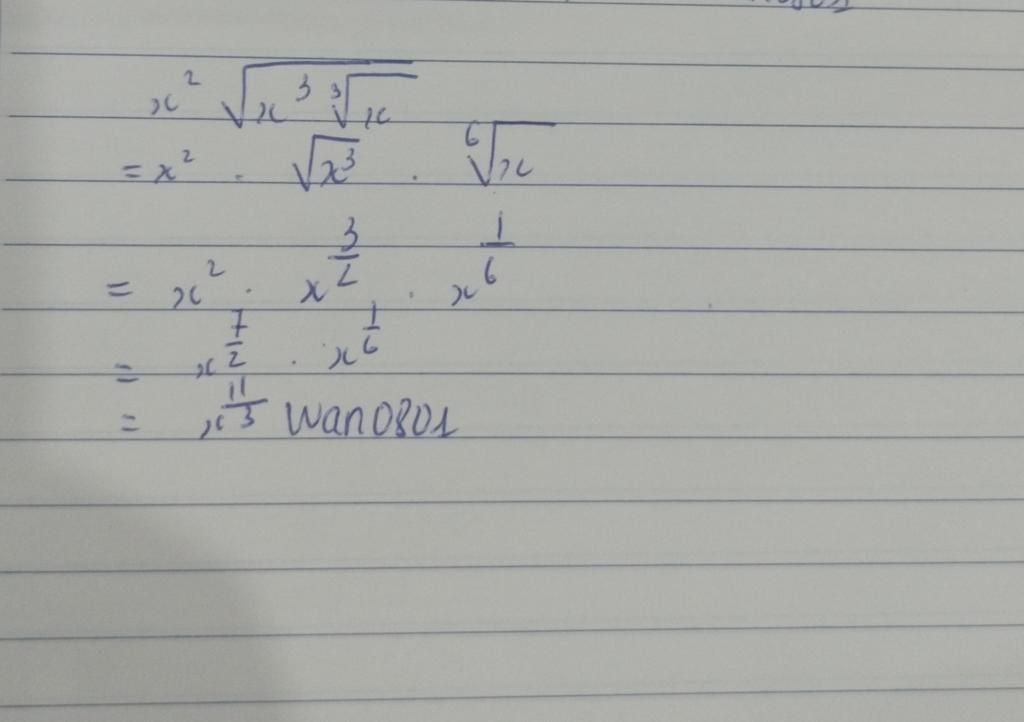 x² √(x³ ∛x)
= x² . √x³ . ⁶√x
= x² . x^(3/2) . x^(1/6)
= x^(7/2) . x^(1/6)
= x^(11/3) Wan0801